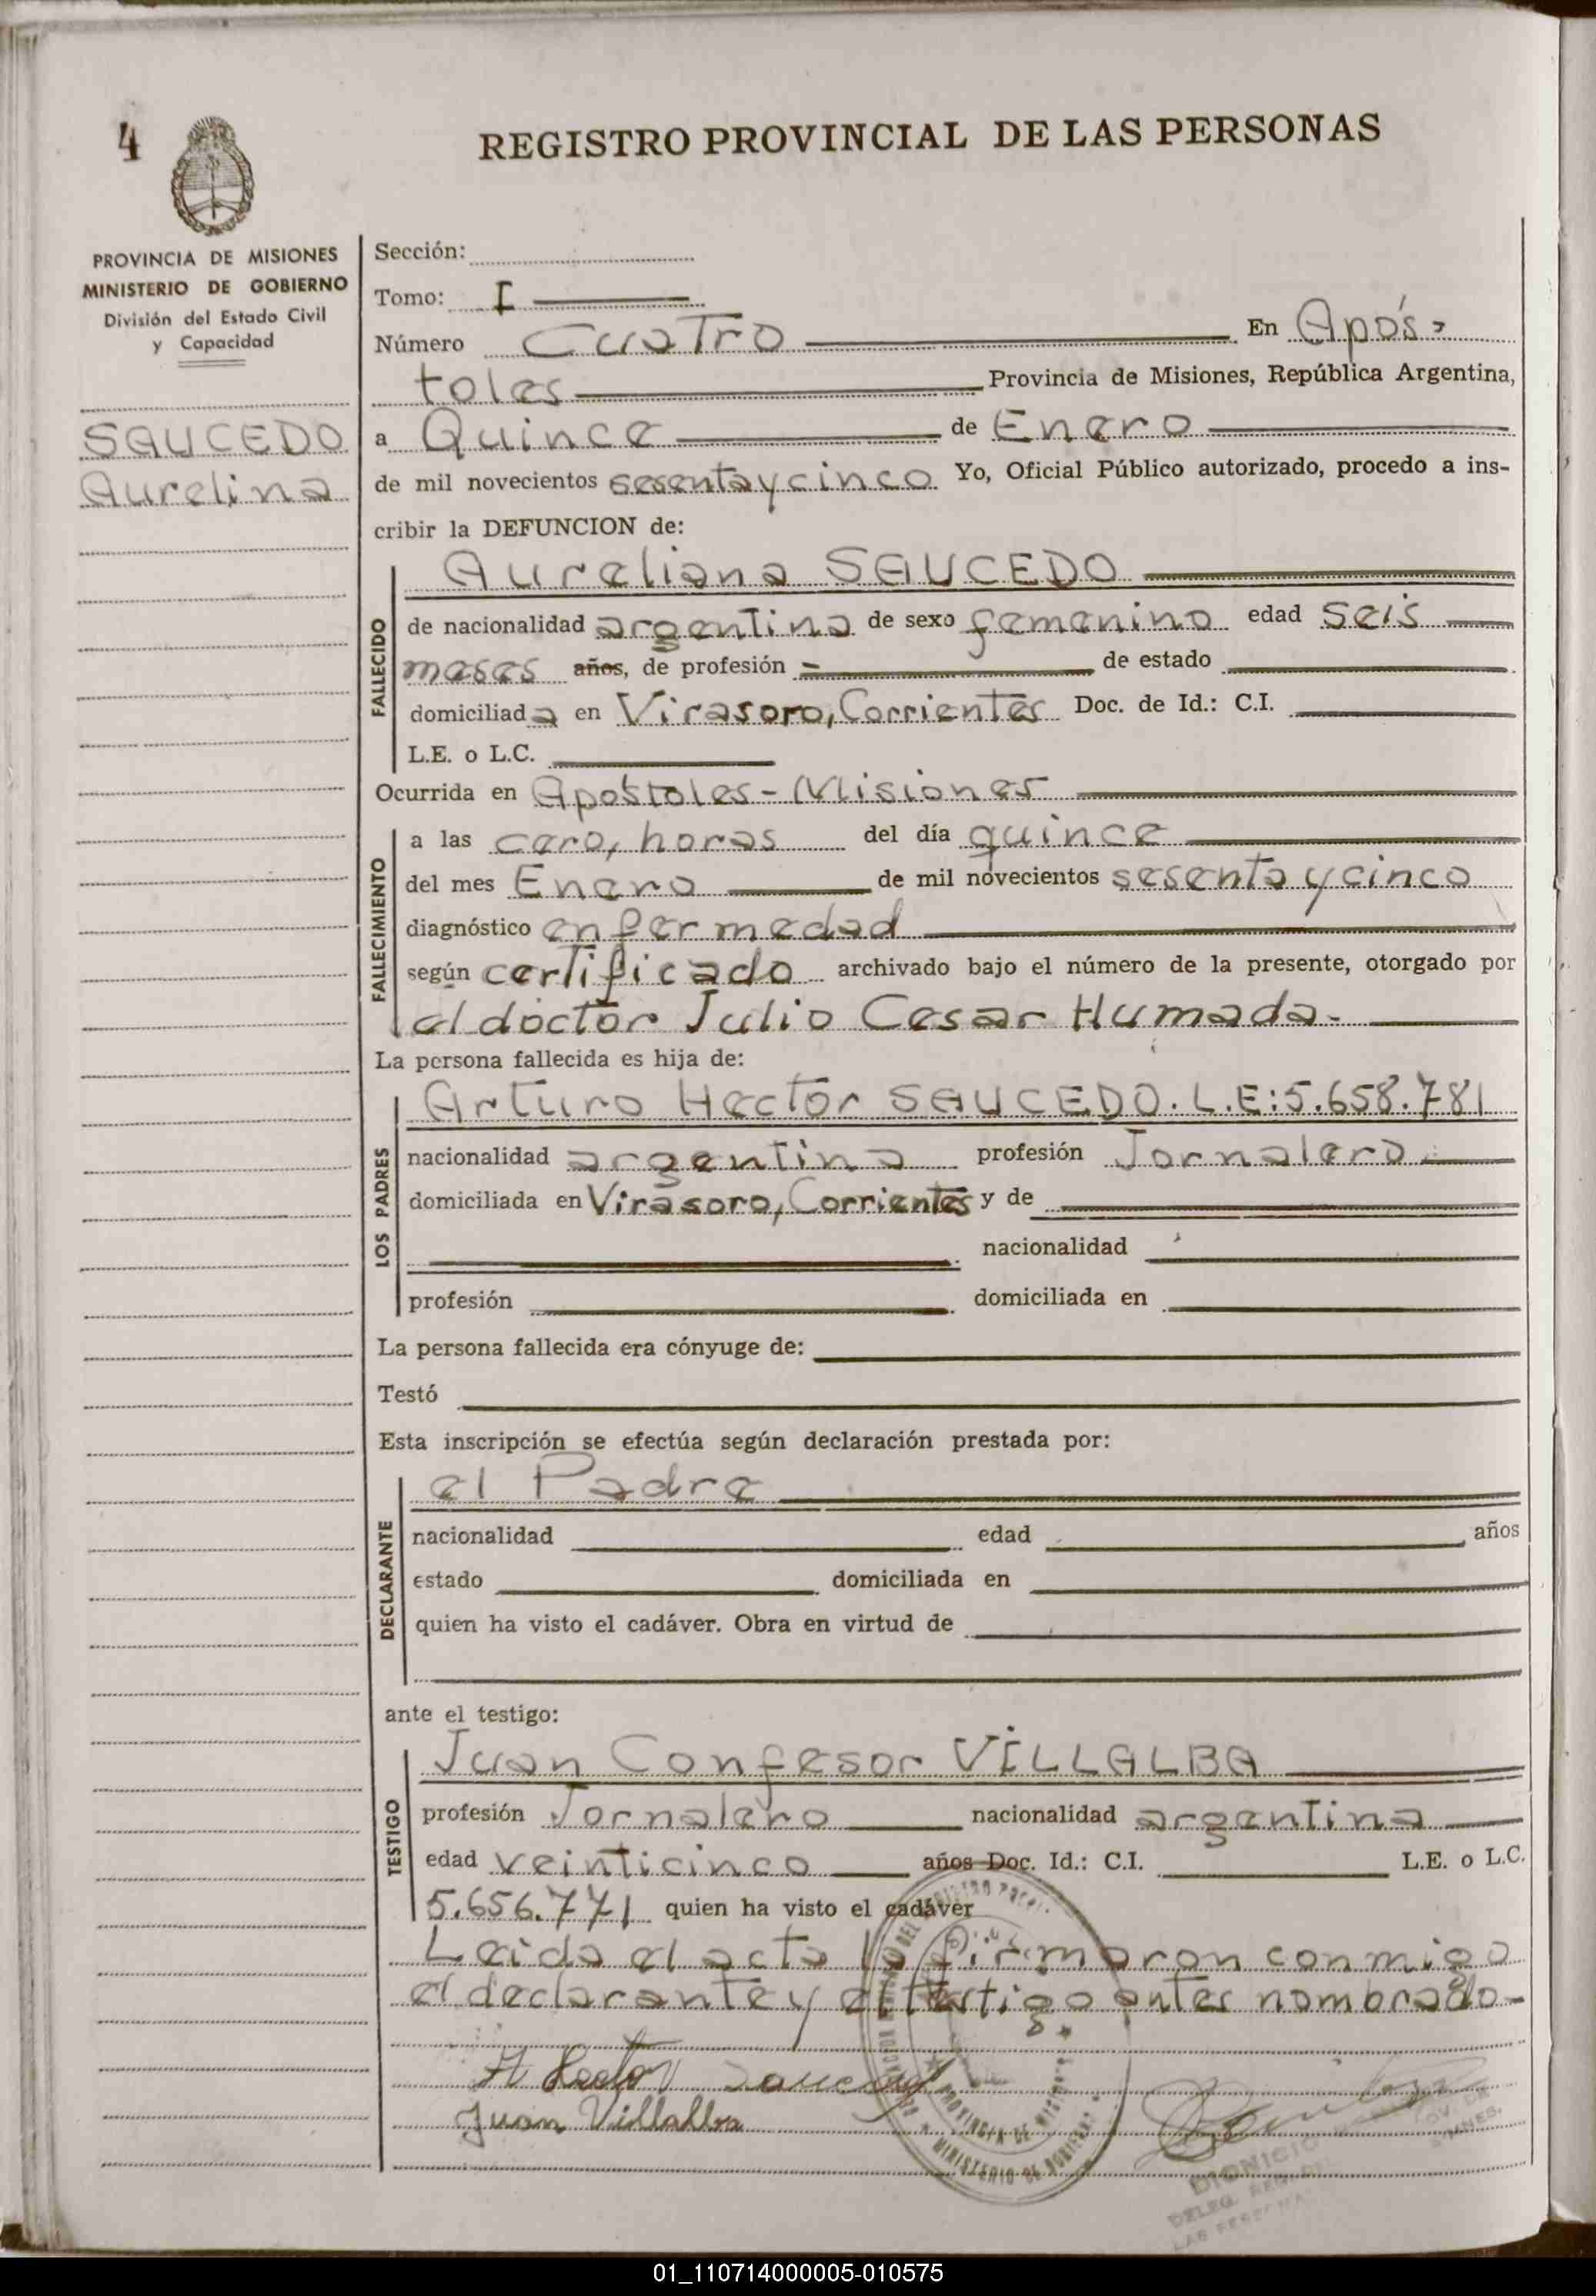 4
REGISTRO PROVINCIAL DE LAS PERSONAS
PROVINCIA DE MISIONES
MINISTERIO DE GOBIERNO
División del Estado Civil
y Capacidad
SAUCEDO
Aurelina
Sección:
Tomo: I
Número Cuatro En Após=
toles Provincia de Misiones, República Argentina,
a Quince de Enero
de mil novecientos sesenta y cinco Yo, Oficial Público autorizado, procedo a ins-
cribir la DEFUNCION de:
Aureliana SAUCEDO
FALLECIDO
de nacionalidad argentina de sexo femenino edad seis
meses años, de profesión - de estado
domiciliada en Virasoro, Corrientes Doc. de Id.: C.I.
L.E. o L.C.
Ocurrida en Apóstoles - Misiones
FALLECIMIENTO
a las cero, horas del día quince
del mes Enero de mil novecientos sesenta y cinco
diagnóstico enfermedad
según certificado archivado bajo el número de la presente, otorgado por
el doctor Julio Cesar Humada-
La persona fallecida es hija de:
LOS PADRES
Arturo Hector SAUCEDO. L.E: 5.658.781
nacionalidad argentina profesión Jornalero
domiciliada en Virasoro, Corrientes y de
nacionalidad
profesión domiciliada en
La persona fallecida era cónyuge de:
Testó
Esta inscripción se efectúa según declaración prestada por:
DECLARANTE
el Padre
nacionalidad edad años
estado domiciliada en
quien ha visto el cadáver. Obra en virtud de
ante el testigo:
TESTIGO
Juan Confesor VILLALBA
profesión Jornalero nacionalidad argentina
edad veinticinco años Doc. Id.: C.I. L.E. o L.C.
5.656.771 quien ha visto el cadáver
Leida el acta la firmaron conmigo
el declarante y el testigo antes nombrado-
A Hector Saucedo
Juan Villalba
PROVINCIA DE MISIONES
MINISTERIO DE GOBIERNO
DIONICIO
DELEG. REG. DE
LAS PERSONAS
01_110714000005-010575